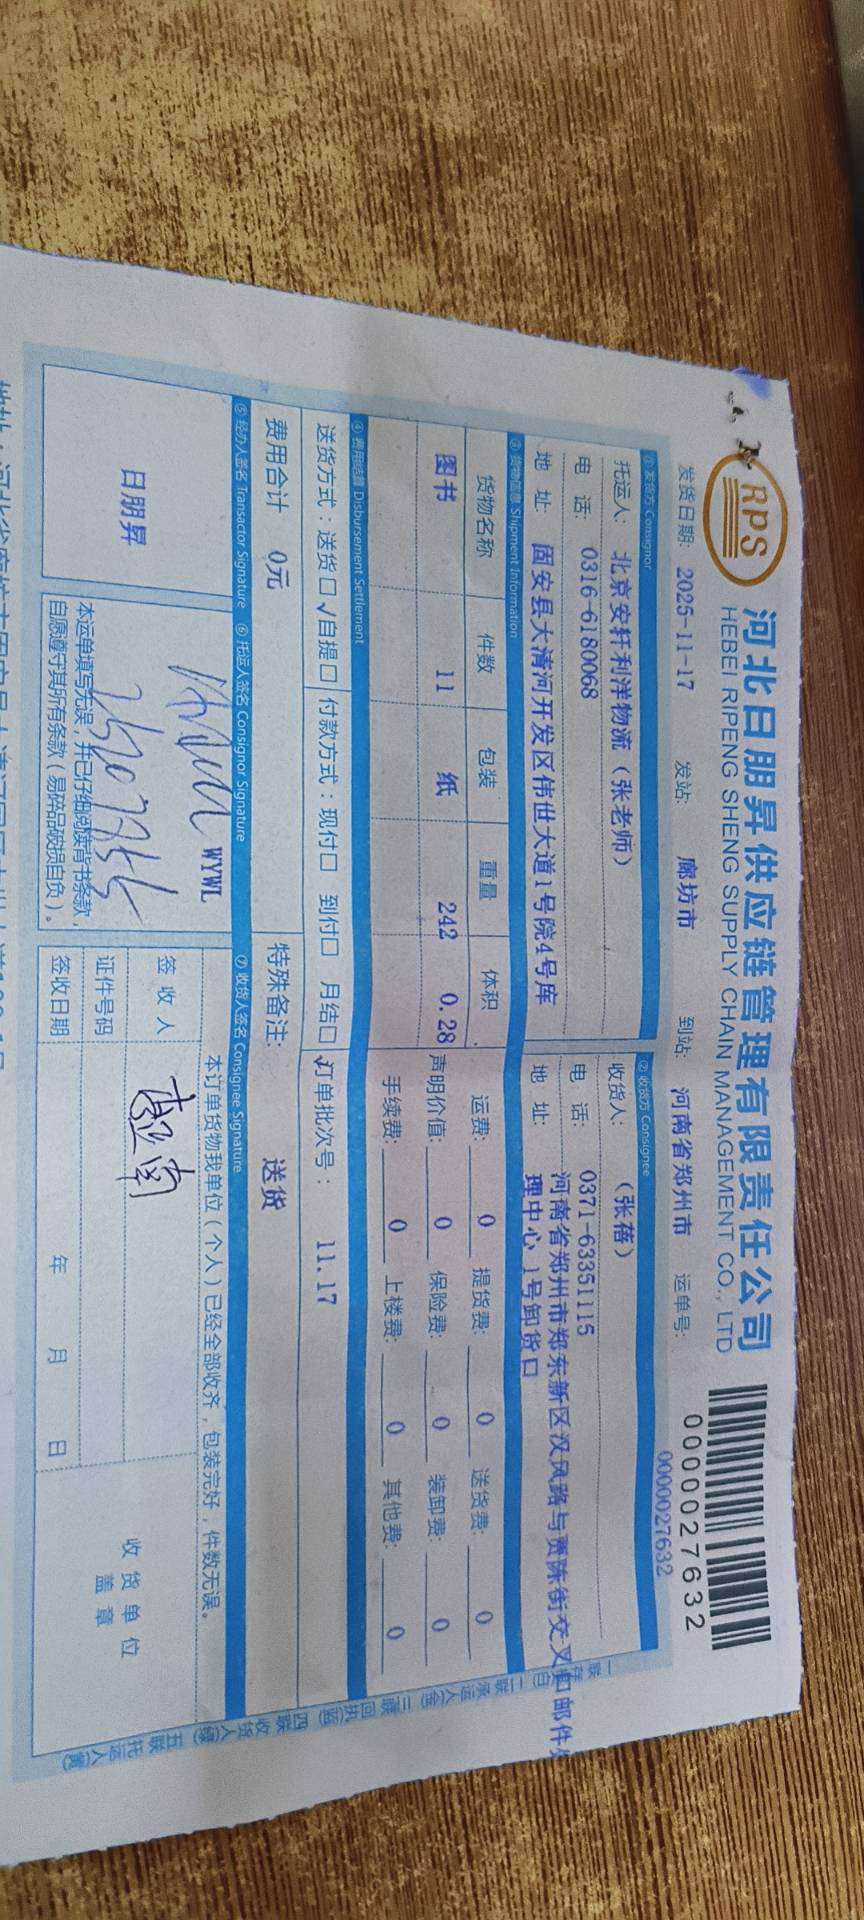 RPS
河北日朋昇供应链管理有限责任公司
HEBEI RIPENG SHENG SUPPLY CHAIN MANAGEMENT CO., LTD
0000027632
发货日期: 2025-11-17 发站: 廊坊市 到站: 河南省郑州市 运单号: 0000027632
① 发货方 Consignor
托运人: 北京安轩利洋物流（张老师）
电 话: 0316-6180068
地 址: 固安县大清河开发区伟世大道1号院4号库
② 收货方 Consignee
收货人: （张蓓）
电 话: 0371-63351115
地 址: 河南省郑州市郑东新区汉风路与贾陈街交叉口邮件处
理中心 1号卸货口
③ 货物信息 Shipment Information
货物名称 件数 包装 重量 体积
图书 11 纸 242 0.28
运费: 0 提货费: 0 送货费: 0
声明价值: 0 保险费: 0 装卸费: 0
手续费: 0 上楼费: 0 其他费: 0
④ 费用结算 Disbursement Settlement
送货方式：送货□ √自提□ 付款方式：现付□ 到付□ 月结□ √订单批次号： 11.17
费用合计 0元 特殊备注: 送货
⑤ 经办人签名 Transactor Signature ⑥ 托运人签名 Consignor Signature ⑦ 收货人签名 Consignee Signature
日朋昇
WYWL
本运单填写无误，并已仔细阅读背书条款，
自愿遵守其所有条款（易碎品破损自负）。
本订单货物我单位（个人）已经全部收齐，包装完好，件数无误。
签 收 人
证件号码
签收日期 年 月 日
收货单位
盖 章
一联存根(白) 二联承运人(金) 三联回执(蓝) 四联收货人(绿) 五联托运人(黄)